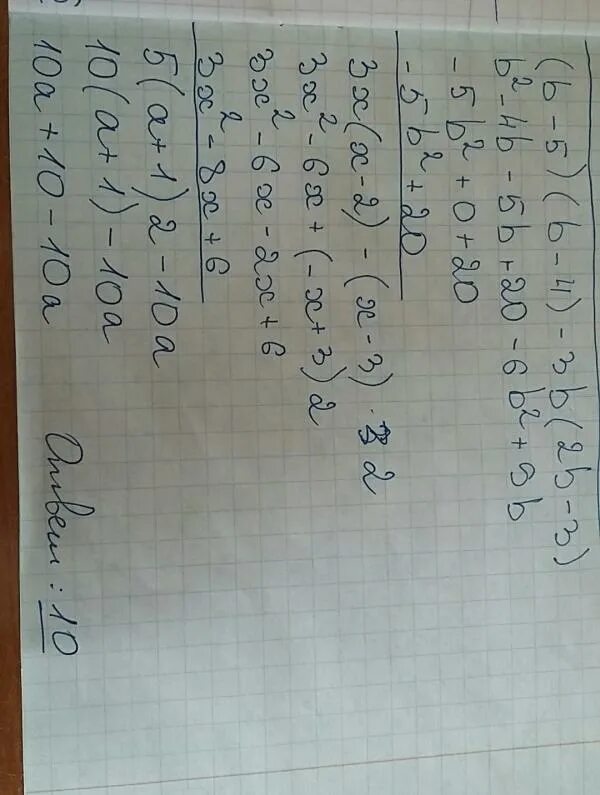 (b-5)(b-4)-3b(2b-3)
b²-4b-5b+20-6b²+9b
-5b²+0+20
-5b²+20
3x(x-2)-(x-3)·2
3x²-6x+(-x+3)2
3x²-6x-2x+6
3x²-8x+6
5(a+1)2-10a
10(a+1)-10a
10a+10-10a
Ответ: 10